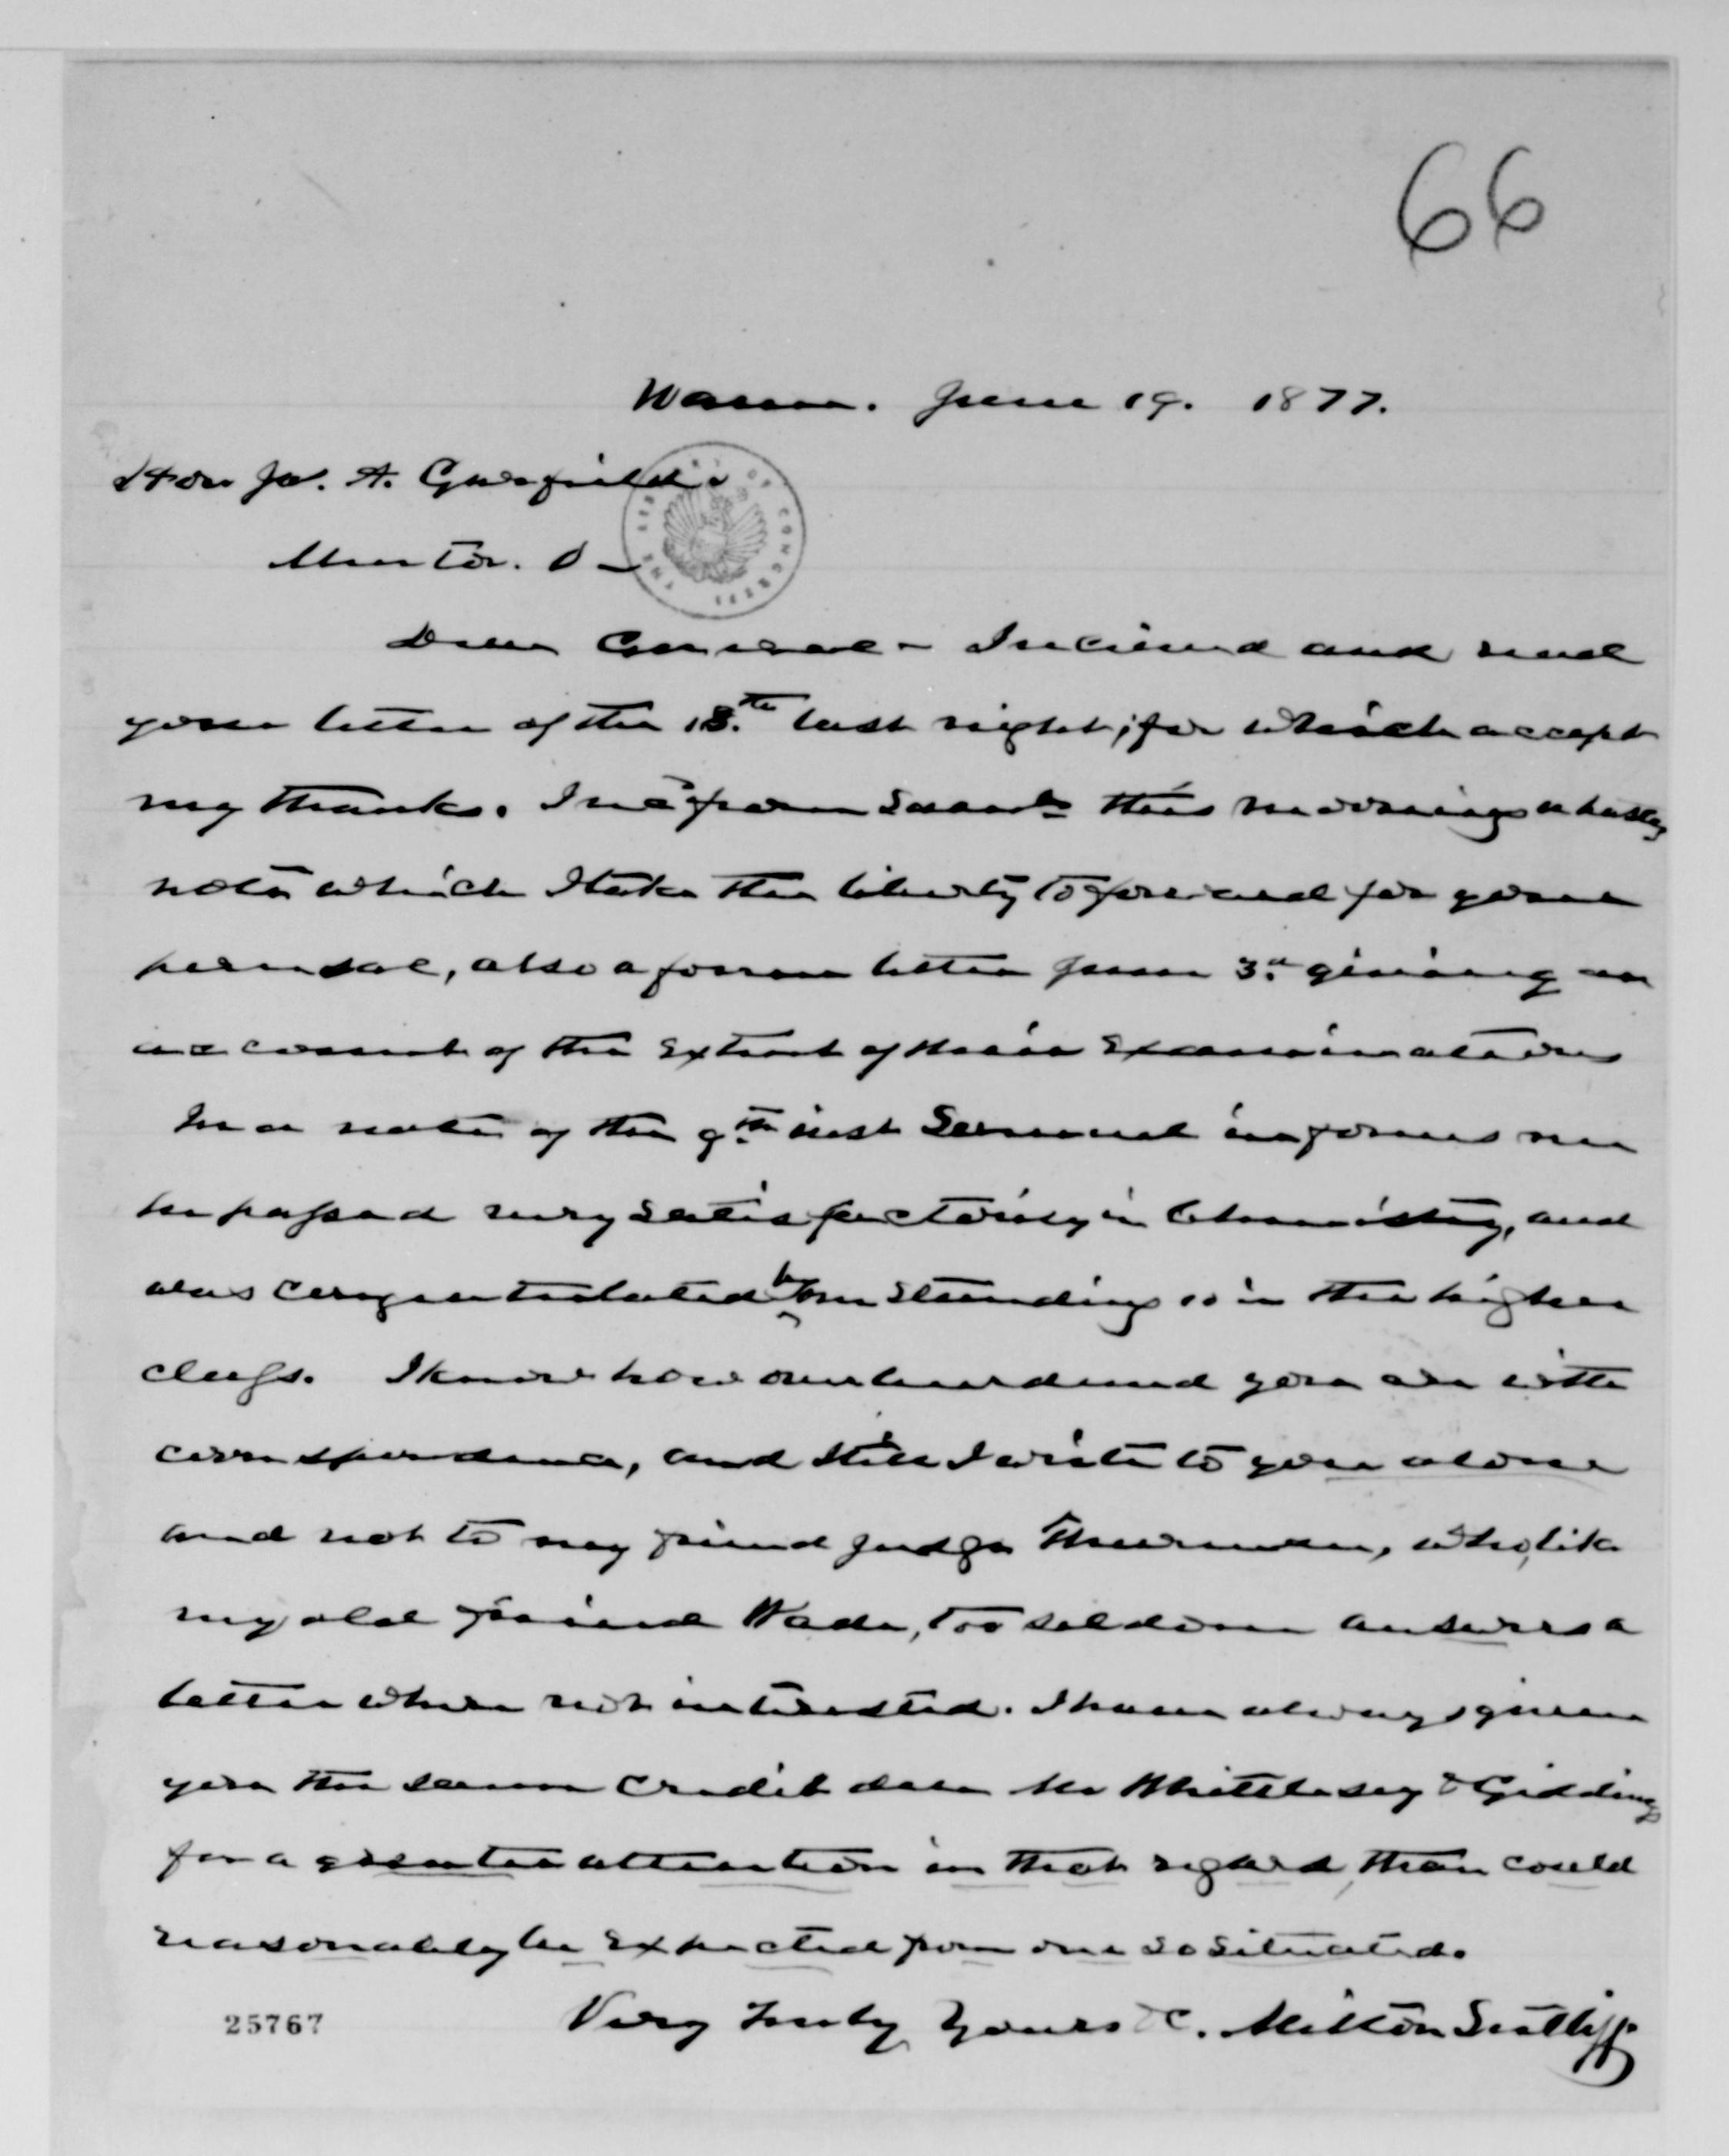 66
Warren. June 19. 1877.
Hon Ja. A. Garfield.
Mentor. O —
THE LIBRARY OF CONGRESS
Dear General - I recieved and read
your letter of the 18.th last night; for which accept
my thanks. I recd from this morning a hasty
note which I take the liberty to forward for your
perusal, also a former letter June 3.d giving an
account of the extent of their examinations
In a note of the 9th inst Samuel informs me
he passed very satisfactorily in Chemistry, and
was congratulated his standing is in the higher
class. I know how overburdened you are with
correspondence, and still I write to you alone
and not to my friend Judge Thurman, who, like
my old friend Wade, too seldom answers a
letter when not interested. I have always given
you the same credit due to Whittlesey & Giddings
for a greater attention in that regard, than could
reasonably be expected from one so situated.
Very truly yours &c. Milton Sutliff
25767